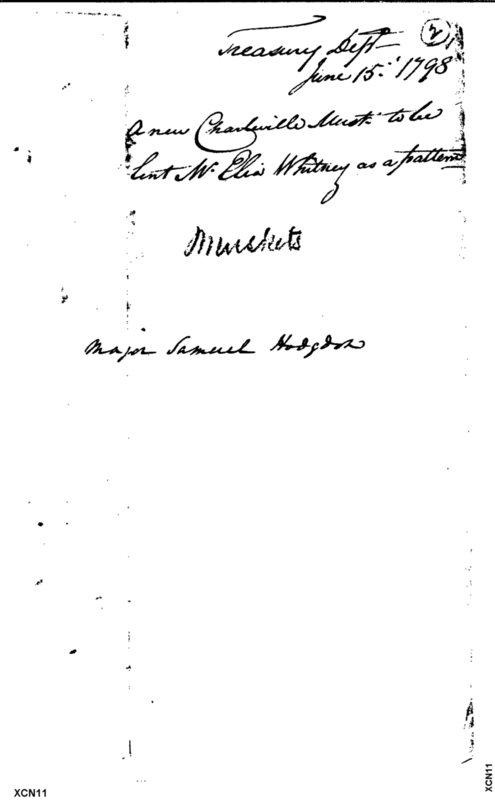 Treasury Dept
2
June 15th 1798
A new Charleville Musk.t to be
lent Mr. Elia Whitney as a pattern
Muskets
Major Samuel Hodgdon
XCN11
XCN11